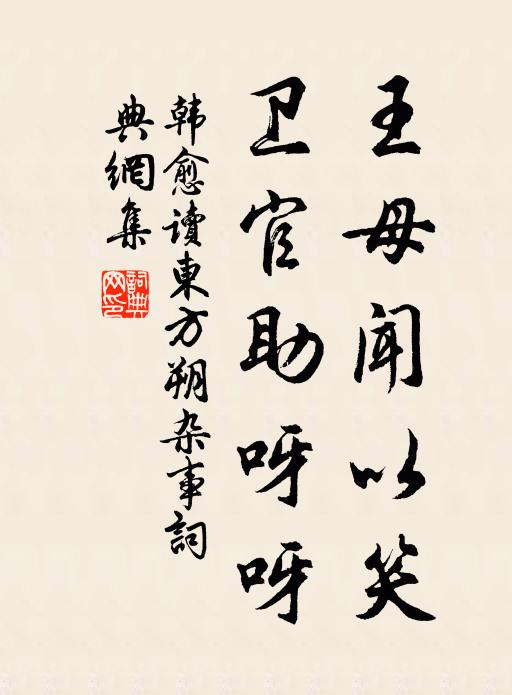 王母闻以笑
卫官助呀呀
韩愈读東方朔杂事詞
典網集
詞典
网印